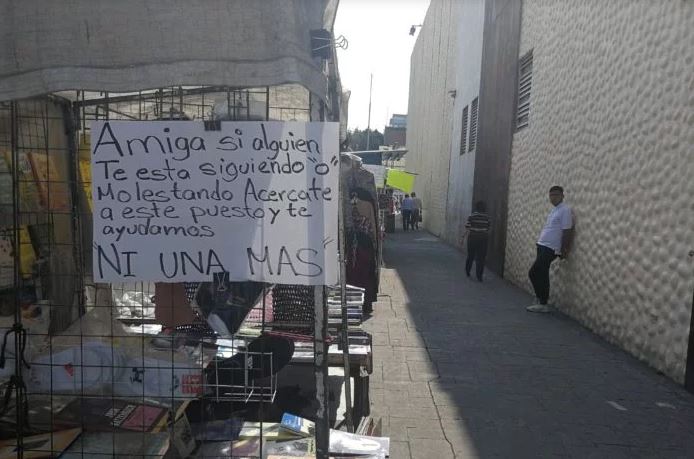 Amiga si alguien
Te esta siguiendo "o"
Molestando Acercate
a este puesto y te
ayudamos
"NI UNA MAS"